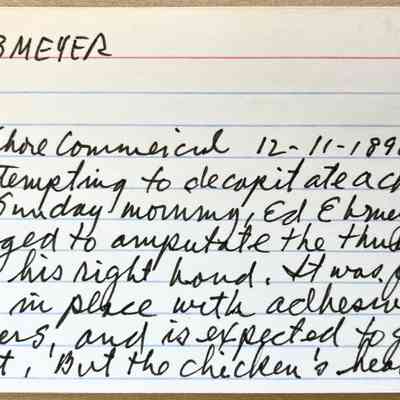 BMEYER
hore Commercial 12-11-189
tempting to decapitate a ch
Sunday morning, Ed Ehme
ged to amputate the thu
his right hand. It was p
in place with adhesiv
ers, and is expected to g
t, But the chicken's hea